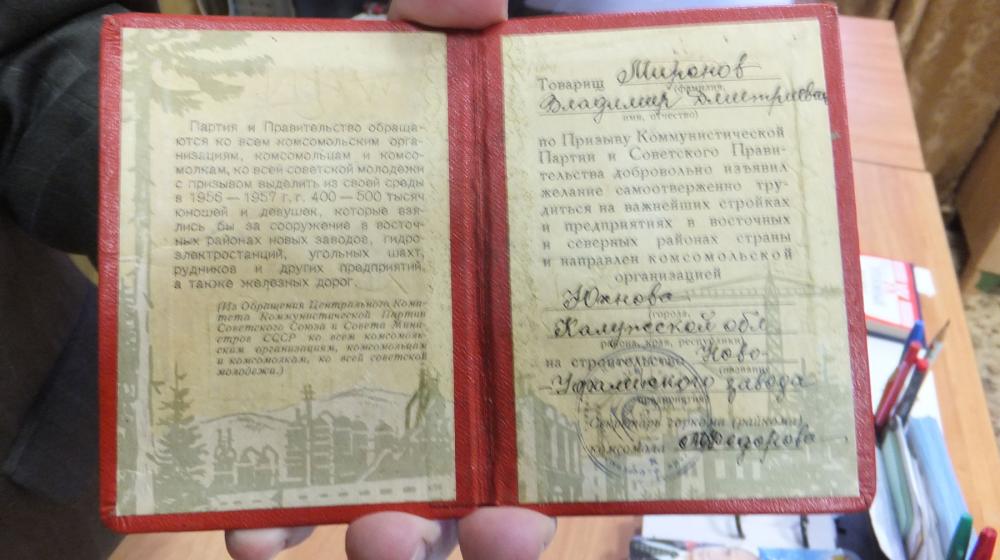 Партия и Правительство обраща-
ются ко всем комсомольским орга-
низациям, комсомольцам и комсо-
молкам, ко всей советской молодежи
с призывом выделить из своей среды
в 1956 — 1957 г.г. 400 — 500 тысяч
юношей и девушек, которые взя-
лись бы за сооружение в восточ-
ных районах новых заводов, гидро-
электростанций, угольных шахт,
рудников и других предприятий,
а также железных дорог.
(Из Обращения Центрального Коми-
тета Коммунистической Партии
Советского Союза и Совета Мини-
стров СССР ко всем комсомоль-
ским организациям, комсомольцам
и комсомолкам, ко всей советской
молодежи.)
Товарищ Миронов
(фамилия,
Владимир Дмитриевич
имя, отчество)
по Призыву Коммунистической
Партии и Советского Прави-
тельства добровольно изъявил
желание самоотверженно тру-
диться на важнейших стройках
и предприятиях в восточных
и северных районах страны
и направлен комсомольской
организацией
Юхнова
(города,
Калужской обл
района, края, республики)
на строительство Ново-
(название
-Уфалейского завода
предприятия)
Секретарь горкома (райкома)
комсомола Федорова